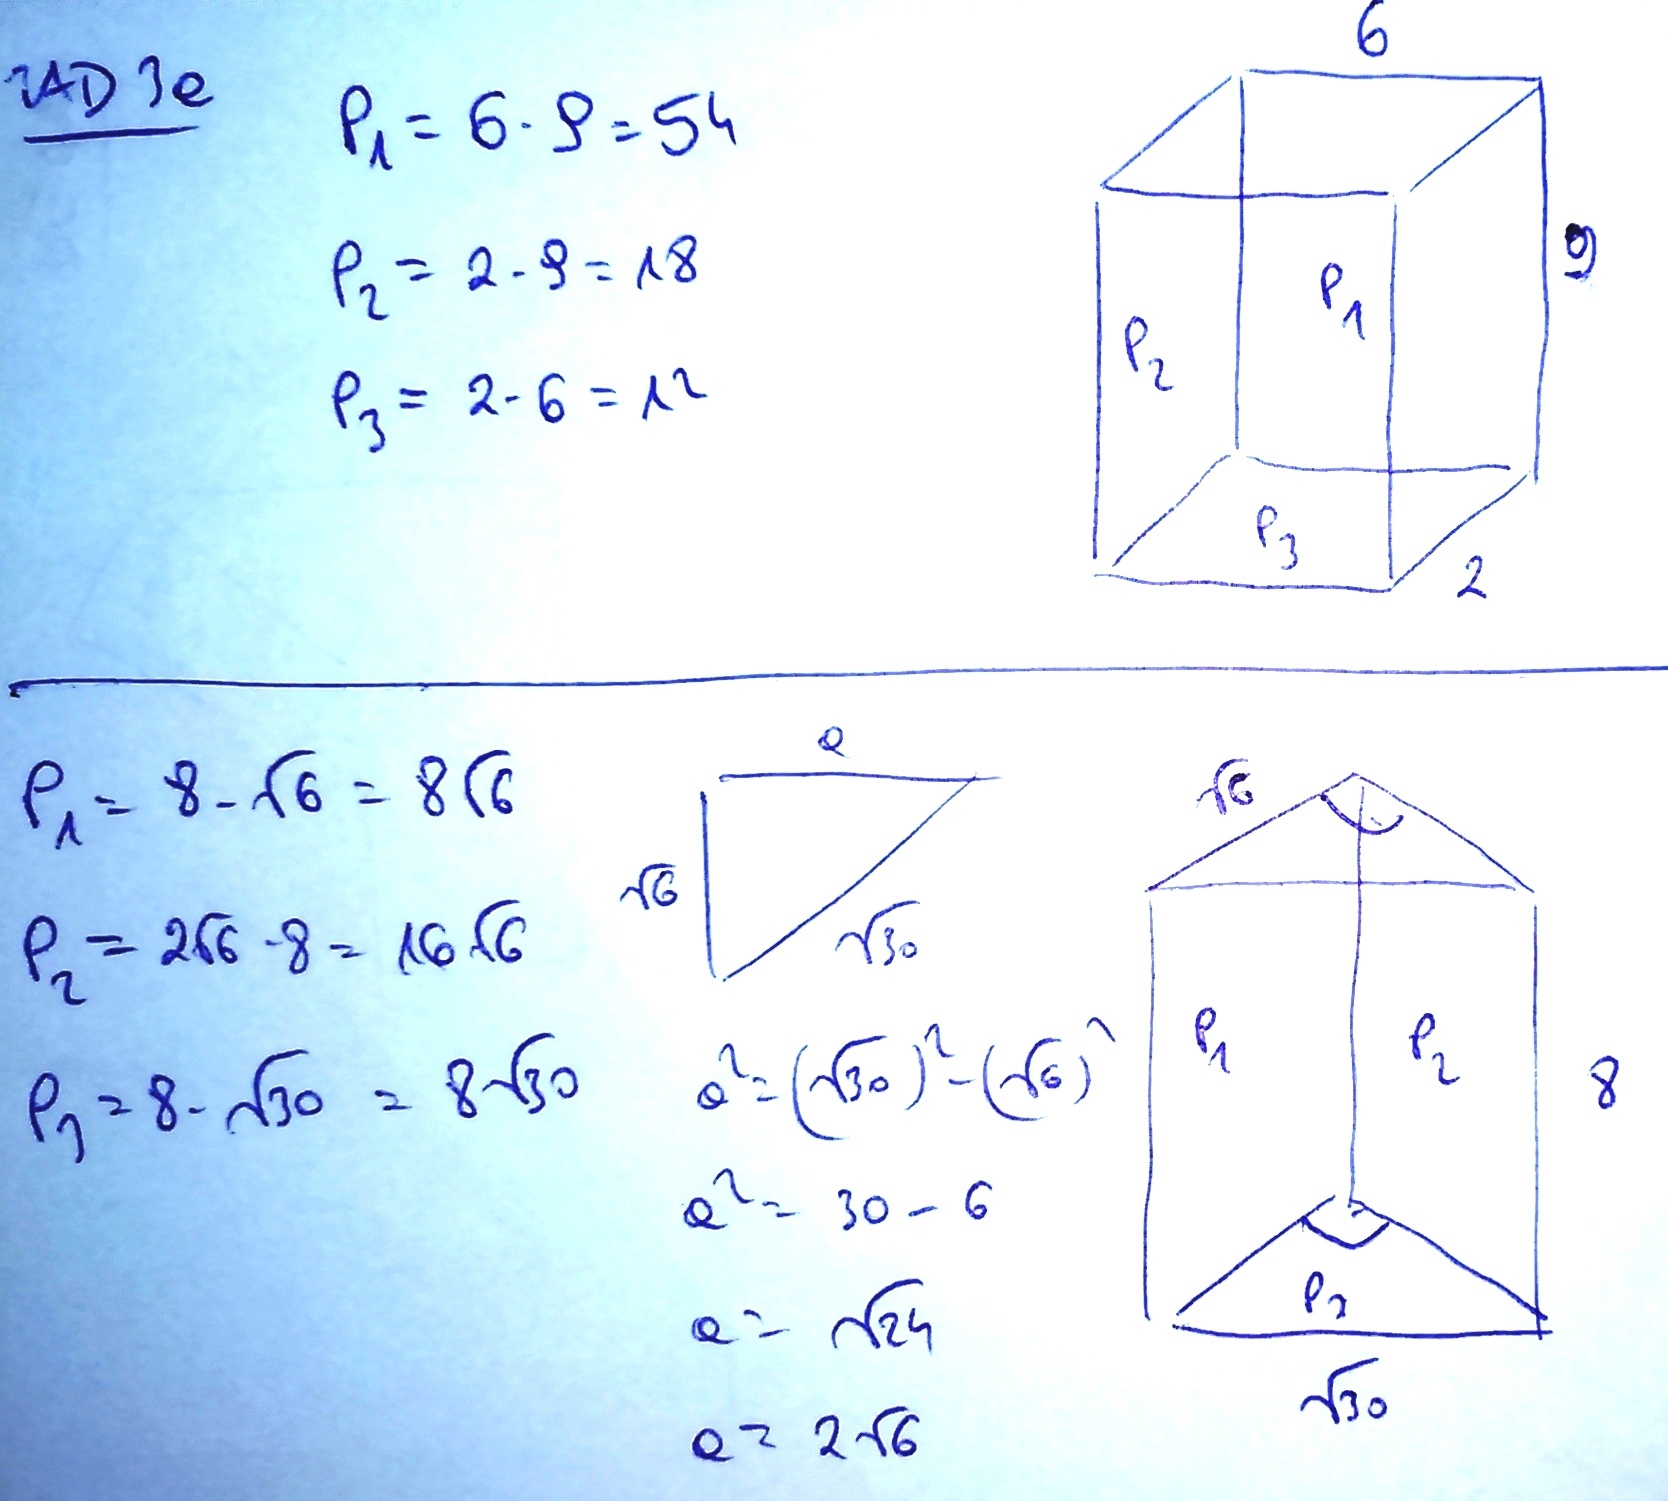 ZAD 3a
P₁ = 6 · 9 = 54
P₂ = 2 · 9 = 18
P₃ = 2 · 6 = 12
6
9
P₁
P₂
P₃
2
P₁ = 8 · √6 = 8√6
P₂ = 2√6 · 8 = 16√6
P₃ = 8 · √30 = 8√30
a
√6
√30
a² = (√30)² - (√6)²
a² = 30 - 6
a = √24
a = 2√6
√6
P₁
P₂
8
P₃
√30